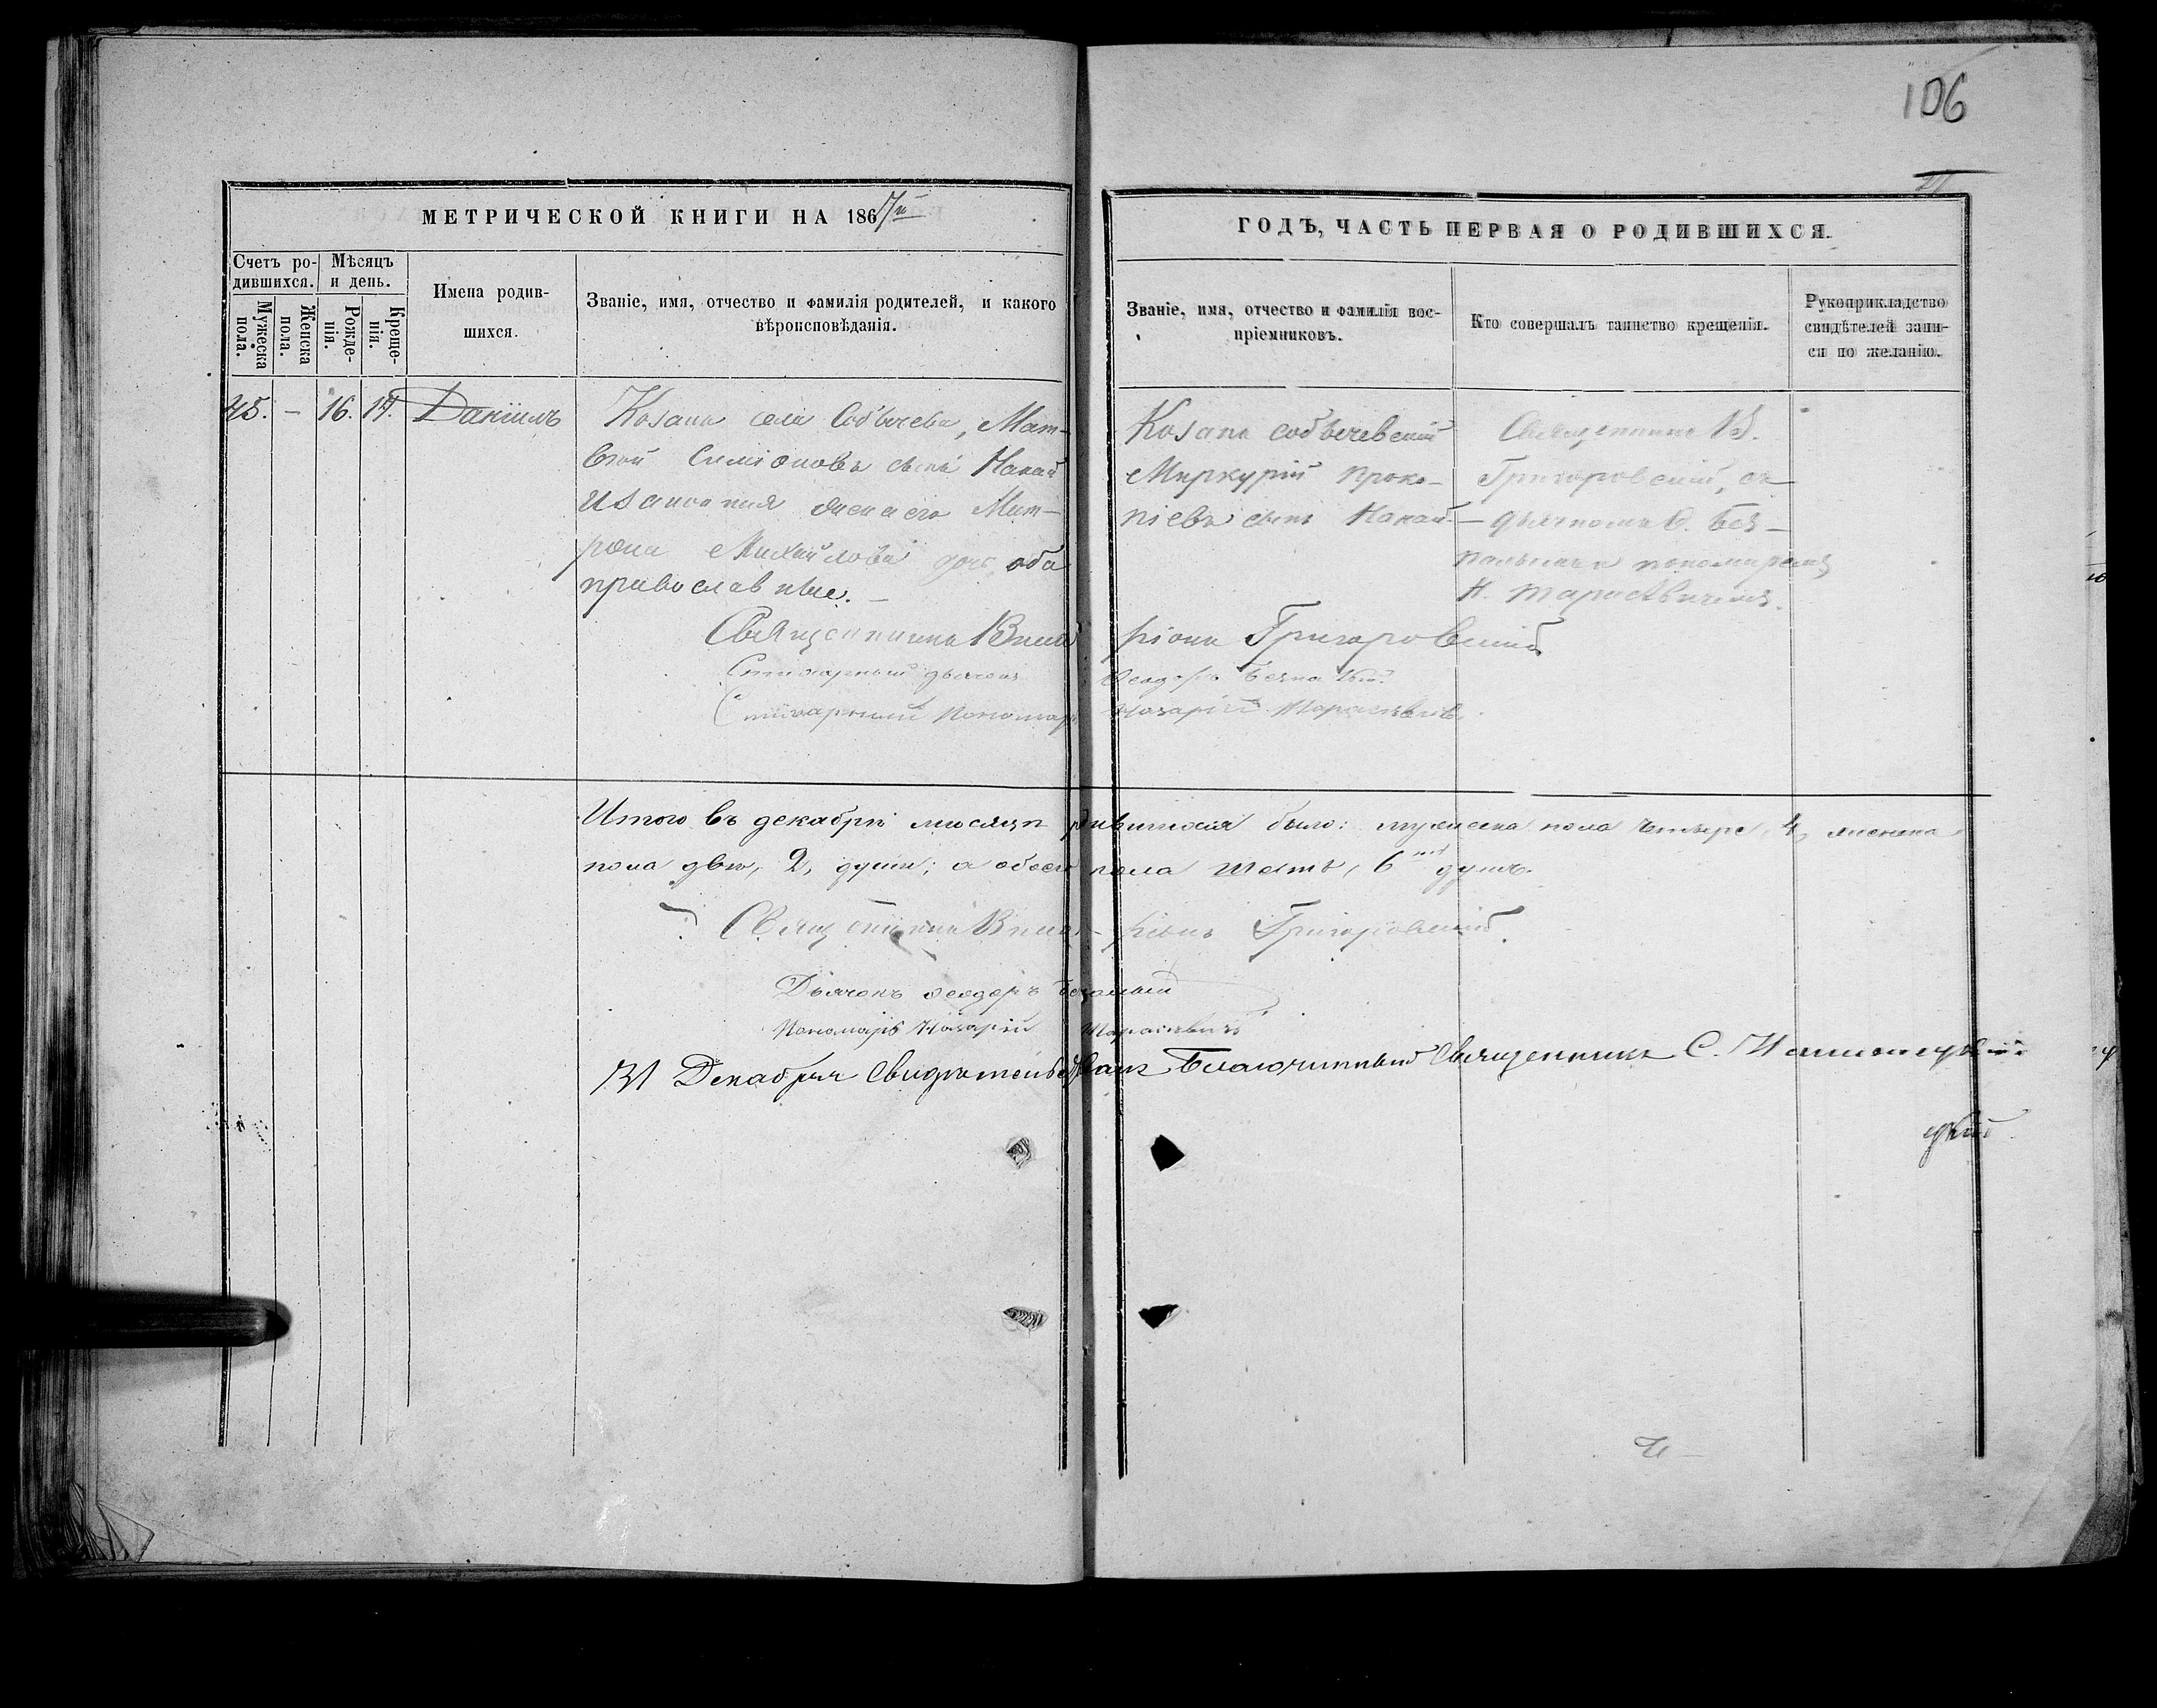 106
МЕТРИЧЕСКОЙ КНИГИ НА 1867й
ГОДЪ, ЧАСТЬ ПЕРВАЯ О РОДИВШИХСЯ.
Счетъ ро-
дившихся.
Мужеска
пола.
Женска
пола.
Мѣсяцъ
и день.
Рожде-
нія.
Креще-
нія.
Имена родив-
шихся.
Званіе, имя, отчество и фамилія родителей, и какого
вѣроисповѣданія.
Званіе, имя, отчество и фамилія вос-
пріемниковъ.
Кто совершалъ таинство крещенія.
Рукоприкладство
свидѣтелей запи-
си по желанію.
45. — 16. 17. Даніилъ
Козакъ села Собычева, Мат-
вѣй Симіоновъ сынъ
законная жена его Мат-
рона Михайлова дочь, оба
православные. —
Козакъ собычевский
Меркурій Проко-
піевъ сынъ
Священникъ В.
Григоровский, съ
дьячкомъ Ѳ. Без-
палымъ и пономаремъ
Н. Тарасевичемъ.
Священникъ Вика- ріонъ Григоровский
Стихарный дьячокъ Ѳеодоръ Безпалый
Стихарный Пономарь Назарій Тарасевичъ.
Итого въ декабрѣ мѣсяцѣ родившихся было: мужеска пола четыре, 4, женска
пола двѣ, 2, души; а обоего пола шесть, 6 душъ.
Священникъ Григоровский.
Дьячокъ Ѳеодоръ Безпалый
Пономарь Назарій Тарасевичъ
31 Декабря Свидѣтельствовалъ Благочинный Священникъ С.